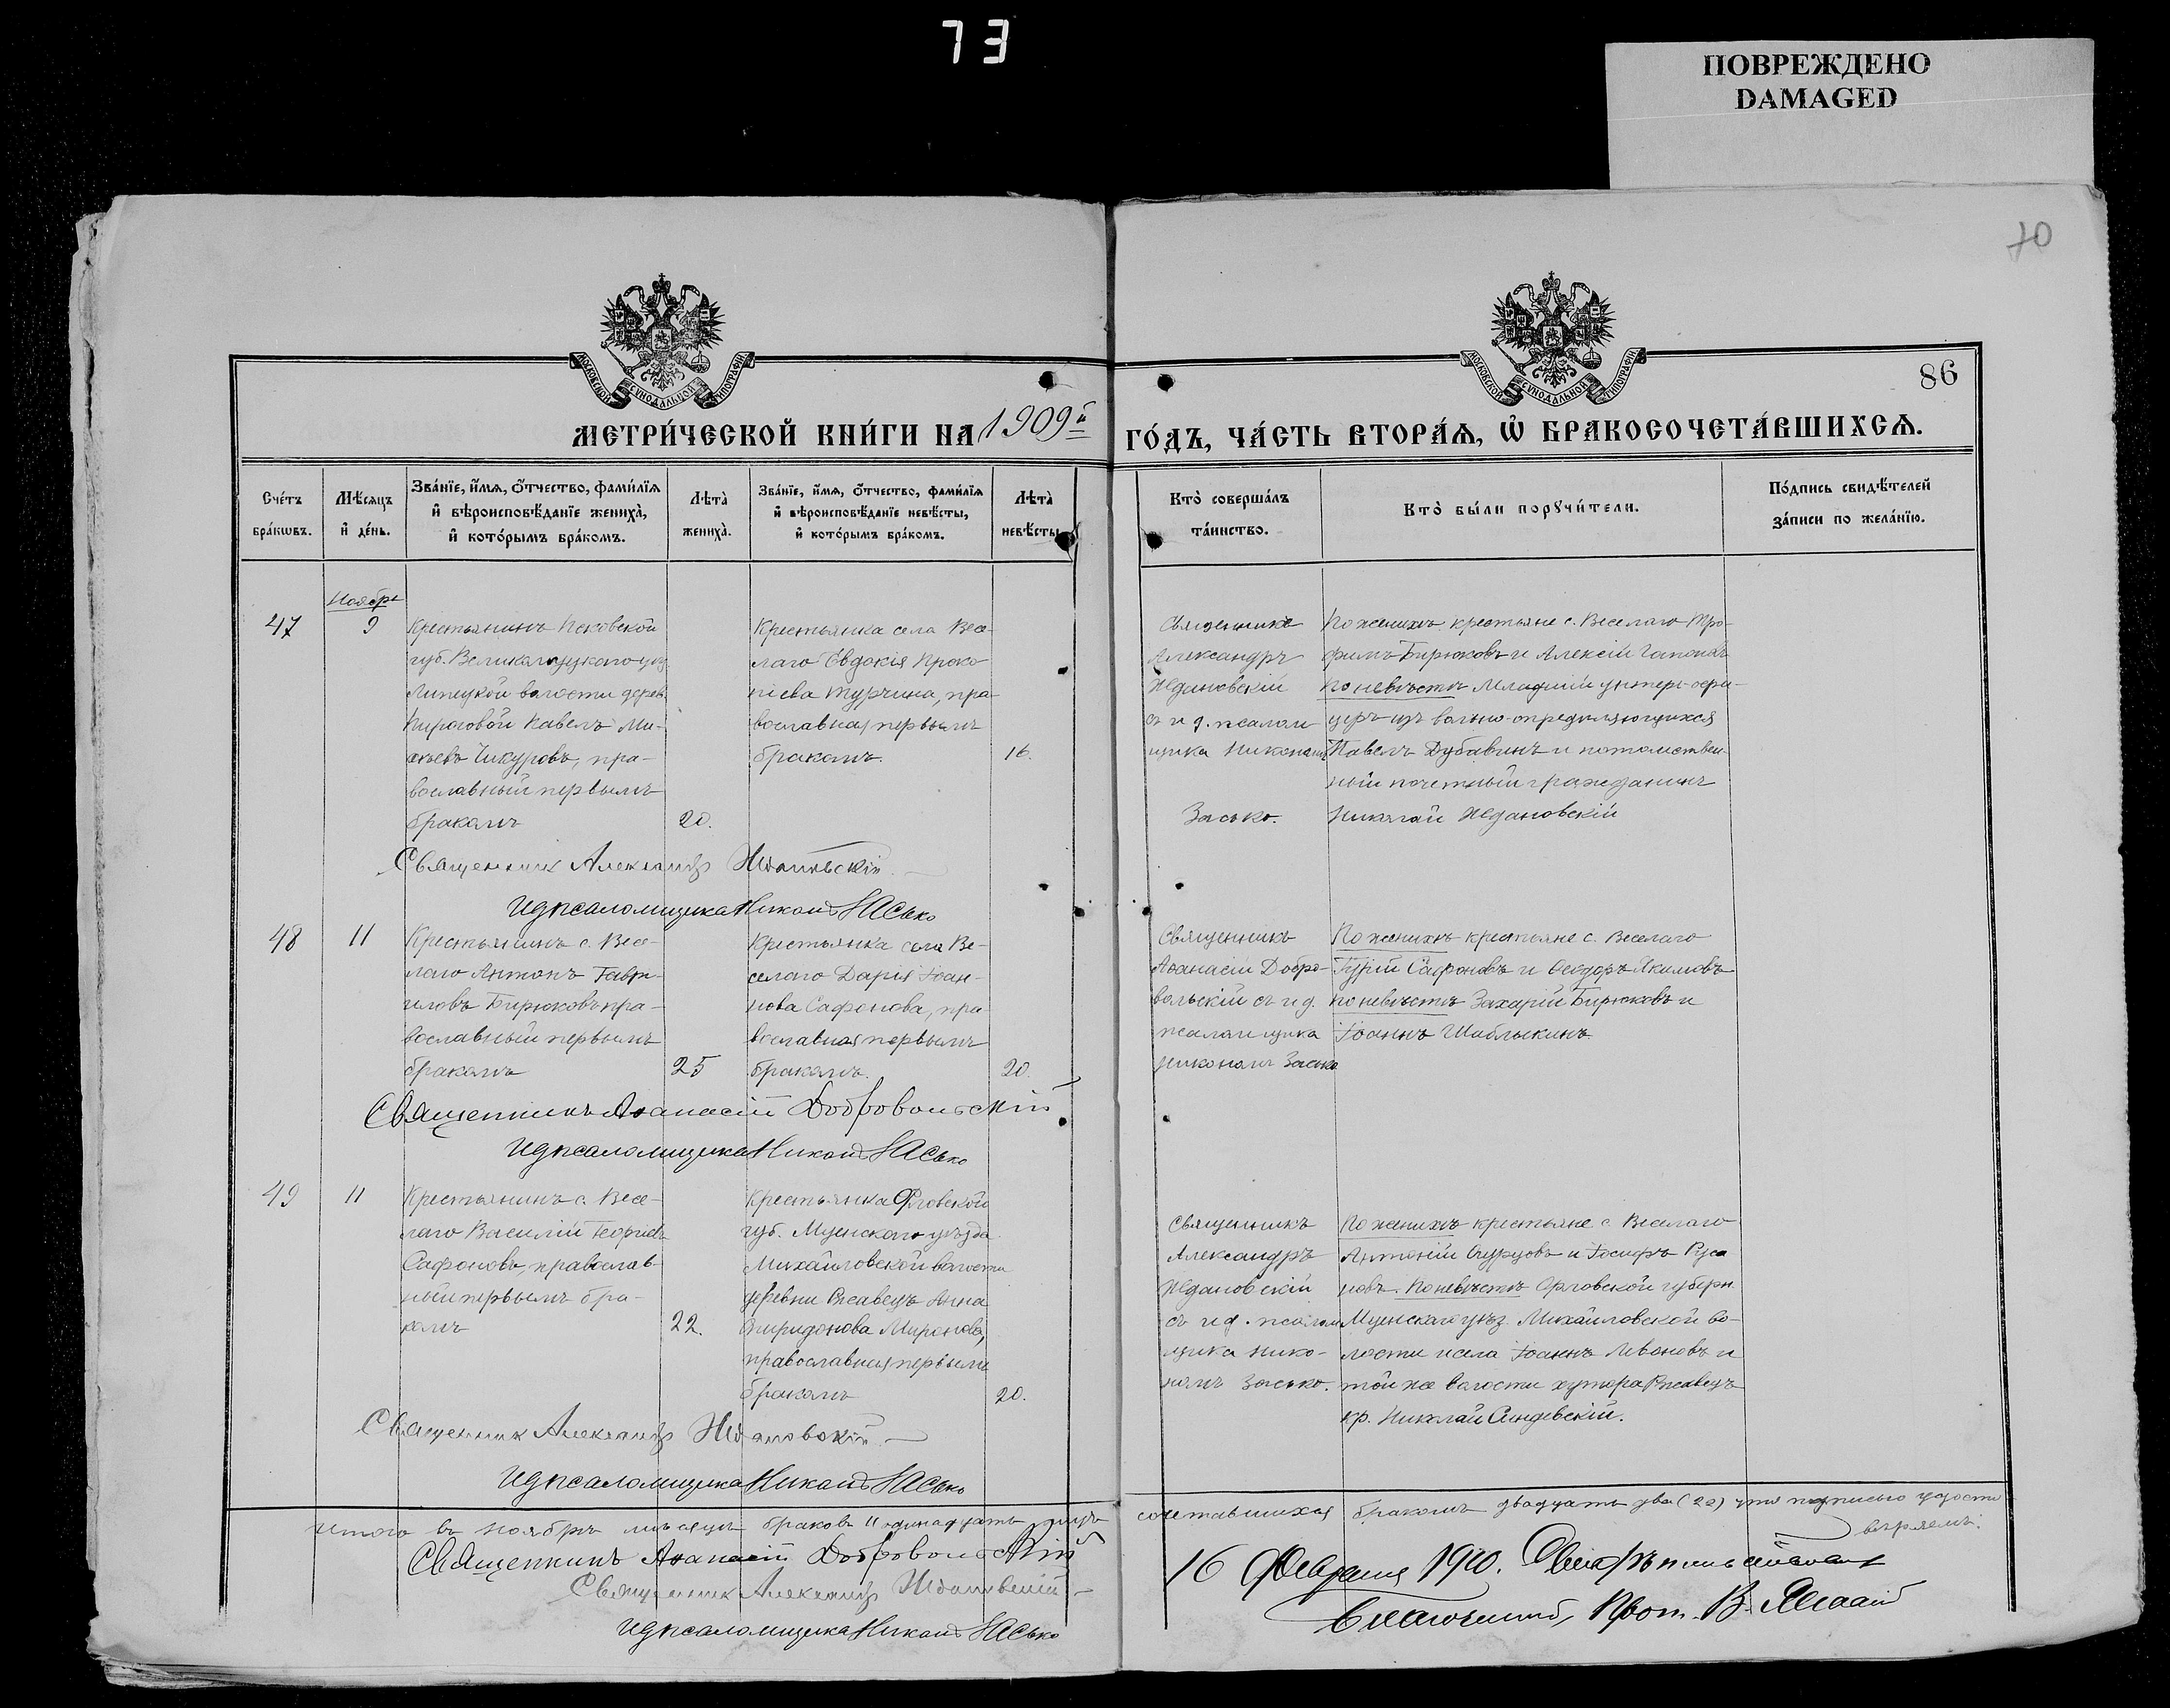 73
ПОВРЕЖДЕНО
DAMAGED
70
МОСКОВСКОЙ СѴНОДАЛЬНОЙ ТИПОГРАФІИ
МОСКОВСКОЙ СѴНОДАЛЬНОЙ ТИПОГРАФІИ
86
МЕТРИ́ЧЕСКОЙ КНИ́ГИ НА 1909й ГО́ДЪ, ЧА́СТЬ ВТОРА́Ѧ, Ѡ҆ БРАКОСОЧЕТА́ВШИХСѦ.
Сче́тъ
бра́кѡвъ.
Мѣ́сѧцъ
и҆ де́нь.
Зва́нїе, и҆́мѧ, ѻ҆́тчество, фами́лїѧ
и҆ вѣроисповѣ́данїе жениха̀,
и҆ кото́рымъ бра́комъ.
Лѣта̀
жениха̀.
Зва́нїе, и҆́мѧ, ѻ҆́тчество, фами́лїѧ
и҆ вѣроисповѣ́данїе невѣ́сты,
и҆ кото́рымъ бра́комъ.
Лѣта̀
невѣ́сты
Кто̀ соверша́лъ
та́инство.
Кто̀ бы́ли порꙋчи́тели.
По́дпись свидѣ́телей
за́писи по жела́нїю.
Ноябрь
47
9
Крестьянинъ Псковской
губ. Великолуцкаго уѣз
Липецкой волости дерев.
Пироговой Павелъ Ми-
хѣевъ Чикуровъ, пра-
вославный первымъ
бракомъ
20.
Крестьянка села Весе-
лаго Евдокія Проко
піева Турчина, пра-
вославная первымъ
бракомъ.
16.
Священникъ
Александръ
Ждановскій
съ и д. псалом
щика Никономъ
Засько.
По женихѣ крестьяне с. Веселаго Тро-
фимъ Бирюковъ и Алексій Гапоновъ
по невѣстѣ Младшій унтеръ-офи-
церъ изъ вольно-опредѣляющихся
Павелъ Дубавинъ и потомствен-
ный почетный гражданинъ
Николай Ждановскій
Священник Александр Ждановскій
И д псаломщика Никонъ Засько
48
11
Крестьянинъ с. Весе-
лаго Антонъ Гаври-
иловъ Бирюковъ пра-
вославный первымъ
бракомъ
25
Крестьянка села Ве-
селаго Дарія Іоан-
нова Сафонова, пра
вославная первымъ
бракомъ.
20.
Священникъ
Аѳанасій Добро-
вольскій съ и д.
псаломщика
Никономъ Засько
По женихѣ крестьяне с. Веселаго
Гурій Сафоновъ и Ѳеодоръ Якимовъ
по невѣстѣ Захарій Бирюковъ и
Іоаннъ Шаблыкинъ
Священникъ Аѳанасій Добровольскій
И д псаломщика Никонъ Засько
49
11
Крестьянинъ с. Весе-
лаго Василій Георгіевъ
Сафоновъ, православ-
ный первымъ бра-
комъ
22.
Крестьянка Орловской
губ. Мценскаго уѣзда
Михайловской волости
деревни Ржавецъ Анна
Спиридонова Миронова,
православная первымъ
бракомъ
20.
Священникъ
Александръ
Ждановскій
съ и д. псалом
щика Нико-
номъ Засько.
По женихѣ крестьяне с. Веселаго
Антоній Огурцовъ и Іосифъ Руса
новъ. По невѣстѣ Орловской губерн.
Мценскаго уѣз. Михайловской во-
лости и села Іоаннъ Ливоновъ и
той же волости хутора Ржавецъ
кр. Николай Синдевскій.
Священник Александр Ждановскій
И д псаломщика Никонъ Засько
Итого въ ноябрѣ мѣсяцѣ браковъ 11 одинадцать лицъ сочетавшихся бракомъ двадцать два (22) что подписью удосто
вѣряемъ.
Священникъ Аѳанасій Добровольскій
Священник Александр Ждановскій
И д псаломщика Никонъ Засько
16 Февраля 1910.
Благочинный, Прот. В.